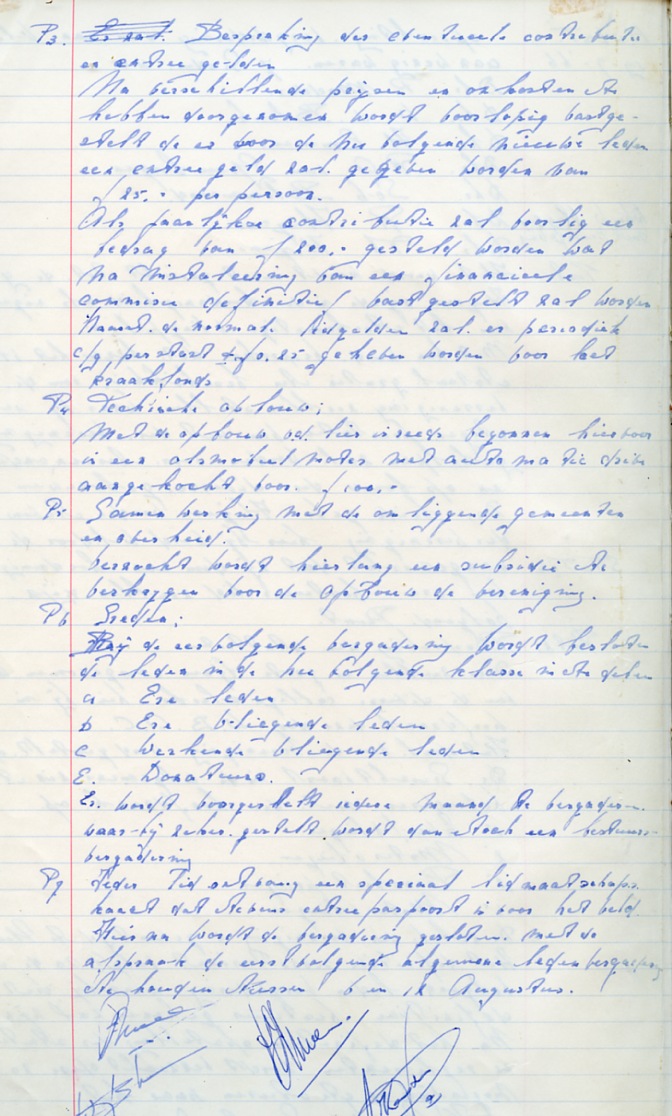 P3. Er zat. Bespreking der eventueele contributie
en entree gelden
Na verschillende prijzen en onkosten te
hebben doorgenomen wordt voorlopig vastge-
stelt de er voor de hier volgende nieuwe leden
een entree geld zal gegeven worden van
ƒ 25,- per persoon.
Als jaarlijkse contributie zal voorlopig een
bedrag van ƒ 200,- gesteld worden wat
na instaleering van een financieele
commisie definitief vastgestelt zal worden
Naast de normale lidgelden zal er periodiek
per start ƒ 0,25 geheven worden voor het
kraakfonds
P4 Technische opbouw;
Met de opbouw vd lier is reeds begonnen hiervoor
is een motor met automatic drive
aangekocht voor ƒ 100,-
P5 Samenwerking met de omliggende gemeenten
en overheid.
verwacht wordt hierlang een subsidie te
verkrygen voor de opbouw de vereniging.
P6 Leden;
Bij de eerstvolgende vergadering wordt besloten
de leden in de hier volgende klasse in te delen
a Ere leden
b Ere vliegende leden
c Werkende vliegende leden
E. Donateurs.
Er wordt voorgestelt iedere maand te vergaderen
waar-bij zeker gestelt wordt dan toch een bestuurs-
vergadering
P7 Ieder lid ontvang een speciaal lidmaatschaps
kaart dat tevens entree paspoort is voor het veld.
Hierna wordt de vergadering gesloten met de
afspraak de eerst volgende algemene ledenvergadering
te houden tussen 6 en 12 Augustus.